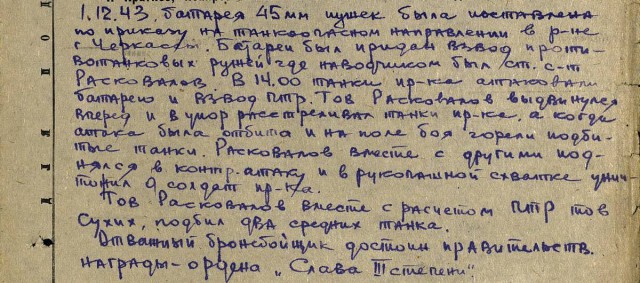 1.12.43. батарея 45мм пушек была поставлена
по приказу на танкоопасном направлении в р-не
г Черкасы. Батареи был придан взвод проти-
вотанковых ружей где наводчиком был ст. с-т
Расковалов. В 14.00 танки пр-ка атаковали
батарею и взвод ПТР. Тов Расковалов выдвинулся
вперед и в упор расстреливал танки пр-ка, а когда
атака была отбита и на поле боя горели подби-
тые танки. Расковалов вместе с другими под-
нялся в контр-атаку и в рукопашной схватке унич-
тожил 9 солдат пр-ка.
Тов Расковалов вместе с расчетом ПТР тов
Сухих, подбил два средних танка.
Отважный бронебойщик достоин правительств.
награды-ордена „Слава III степени"